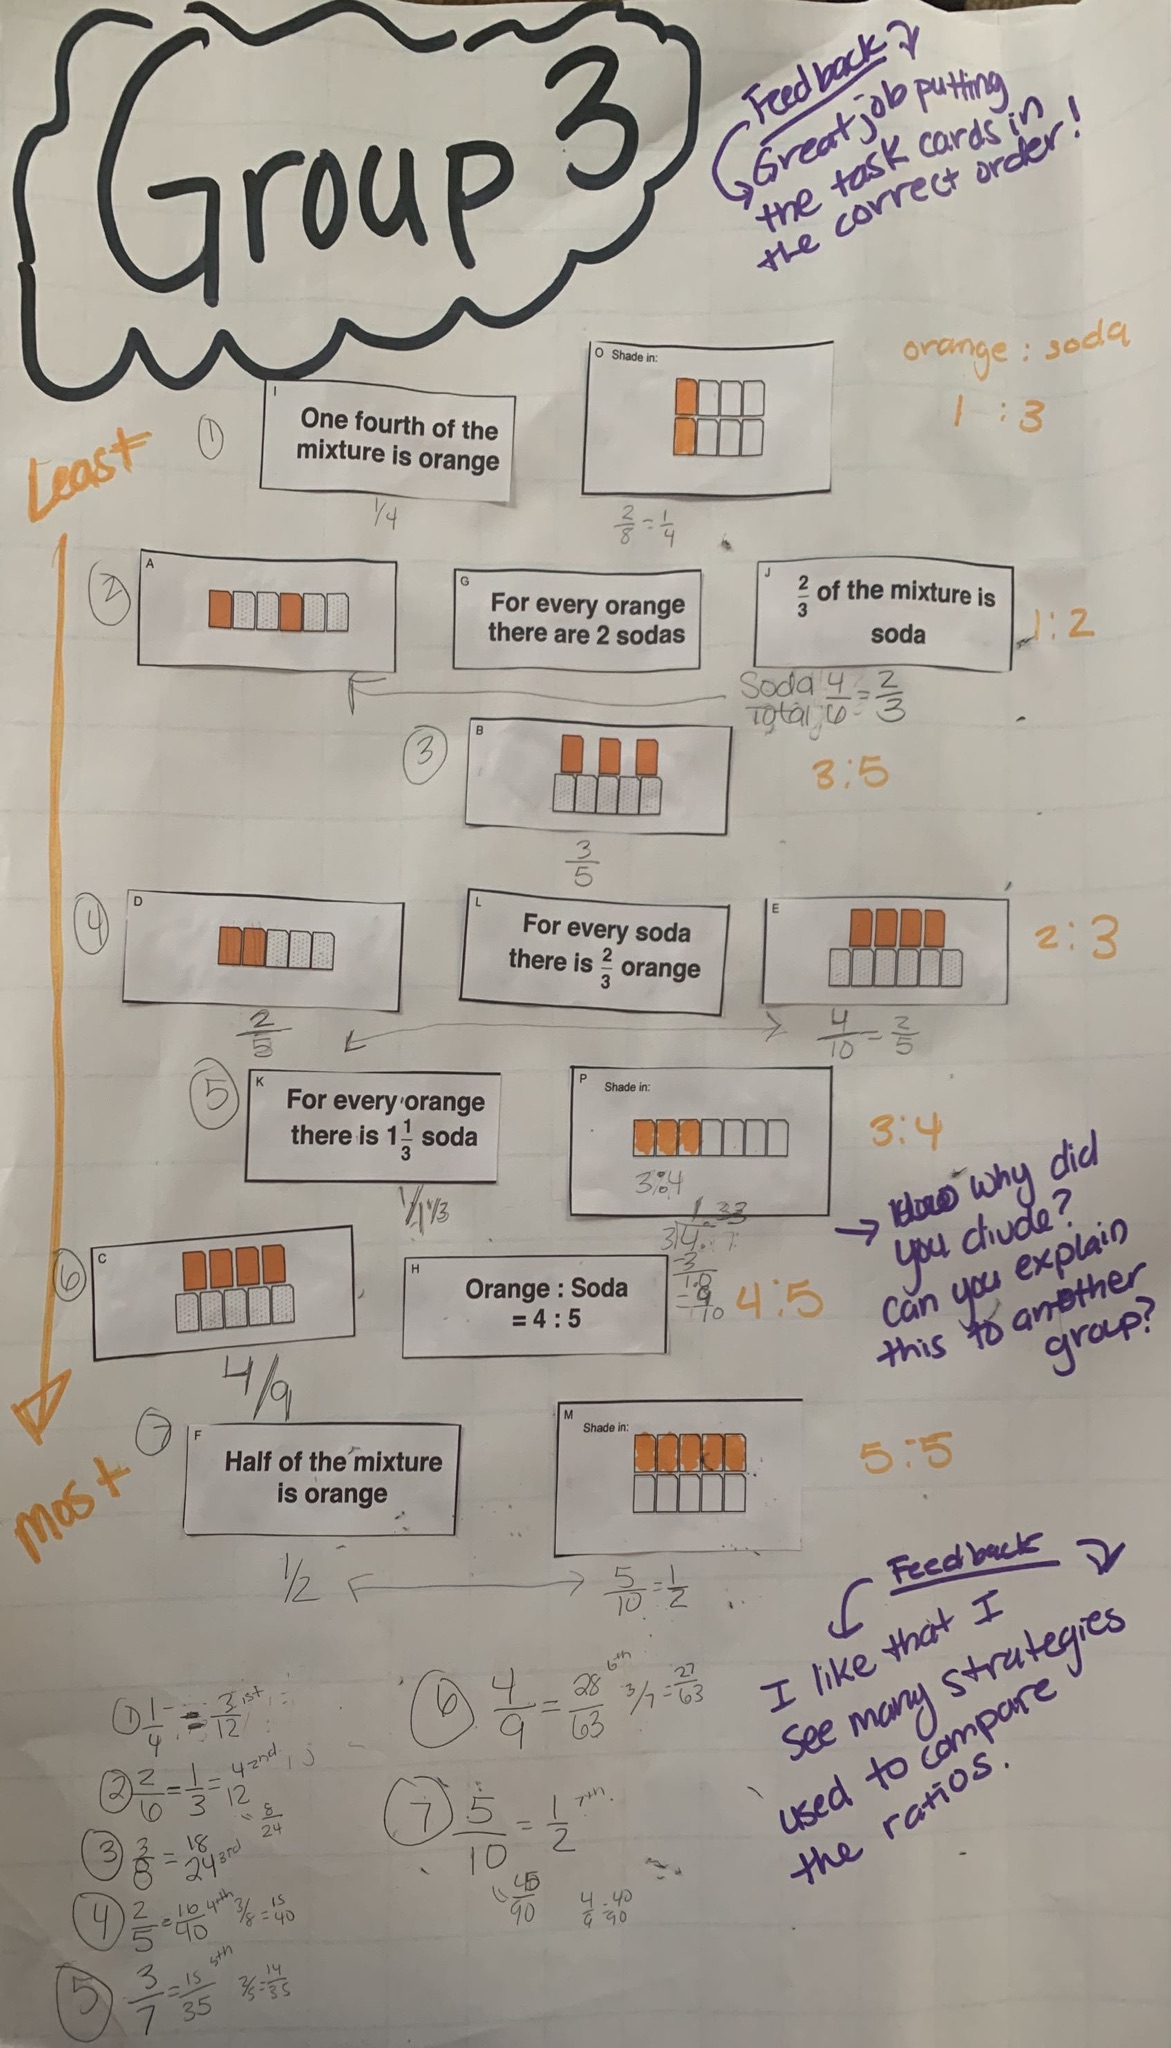 Group 3
Feedback
Great job putting
the task cards in
the correct order!
orange : soda
Least
1
I
One fourth of the
mixture is orange
1/4
O Shade in:
2/8 = 1/4
1 : 3
2
A
G
For every orange
there are 2 sodas
J
2/3 of the mixture is
soda
1:2
Soda 4/6 = 2/3
Total
3
B
3/5
3:5
4
D
2/5
L
For every soda
there is 2/3 orange
E
4/10 = 2/5
2:3
5
K
For every orange
there is 1 1/3 soda
1/1 1/3
P Shade in:
3:4
3:4
1.33
3
1.0
9
10
How why did
you divide?
Can you explain
this to another
group?
6
C
4/9
H
Orange : Soda
= 4 : 5
4:5
7
F
Half of the mixture
is orange
1/2
M
Shade in:
5/10 = 1/2
5:5
most
Feedback
I like that I
see many strategies
used to compare
the ratios.
1 1/4 = 3/12 1st
2 2/6 = 1/3 = 4/12 2nd
8/24
3 3/8 = 18/24 3rd
4 2/5 = 16/40 4th 3/8 = 15/40
5 3/7 = 15/35 5th 2/5 = 14/35
6 4/9 = 28/63 6th 3/7 = 27/63
7 5/10 = 1/2 7th
45/90 4/9 = 40/90